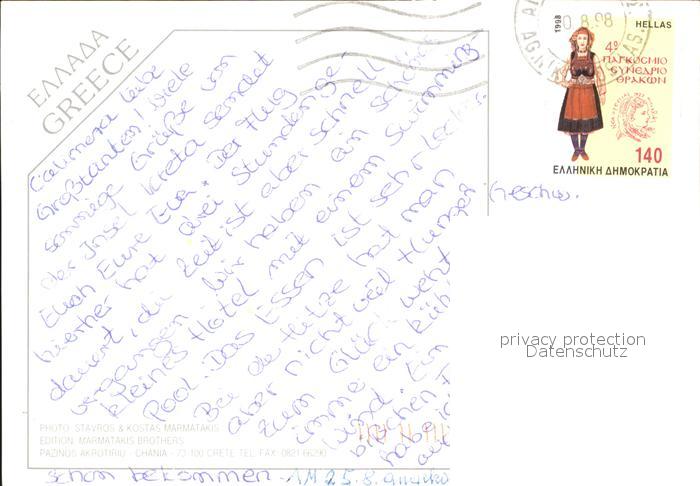 ΕΛΛΑΔΑ
GREECE
Calimera liebe
Großtanten! Viele
sonnige Grüße von
der Insel Kreta sendet
Euch Eure Eva. Der Flug
hierher hat drei Stunden ge-
dauert, die Zeit ist aber schnell
vergangen. Wir haben ein schönes
kleines Hotel mit einem Swimming
Pool. Das Essen ist sehr lecker.
Bei der Hitze hat man
aber nicht viel Hunger
zum Glück weht
immer ein küh
Wind. Ein
bißchen
habe
schon bekommen. AM 25.8.
Geschw.
1998
0 8.98
HELLAS
4º
ΠΑΓΚΟΣΜΙΟ
ΣΥΝΕΔΡΙΟ
ΘΡΑΚΩΝ
140
ΕΛΛΗΝΙΚΗ ΔΗΜΟΚΡΑΤΙΑ
privacy protection
Datenschutz
PHOTO: STAVROS & KOSTAS MARMATAKIS
EDITION: MARMATAKIS BROTHERS
PAZINOS AKROTIRIU - CHANIA - 73 100 CRETE TEL. FAX: 0821-66290